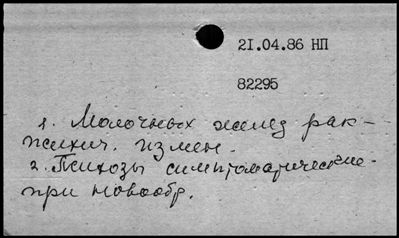 21.04.86 НП
82295
1. Молочных желез рак -
психич. измен.
2. Психозы симптоматические -
при новообр.